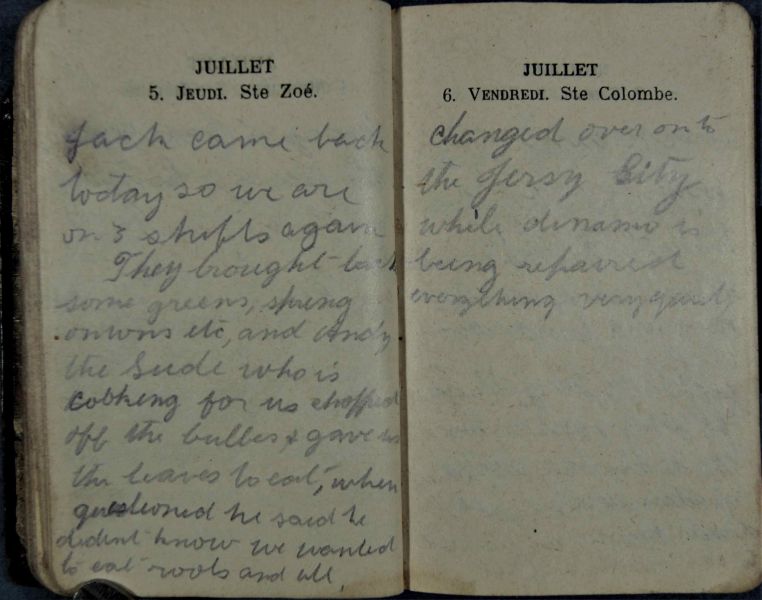 JUILLET
5. JEUDI. Ste Zoé.
Jack came back
today so we are
on 3 shifts again
They brought back
some greens, spring
onions etc, and
the Sude who is
cooking for us chopped
off the bulbes & gave us
the leaves to eat, when
questioned he said he
dident know we wanted
to eat roots and all,
JUILLET
6. VENDREDI. Ste Colombe.
changed over on to
the Jersy City
while dinamo is
being repaired
everything very quiet